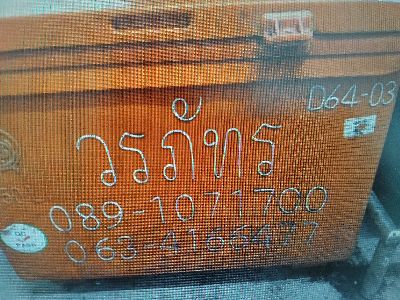 D64-03
วรภัทร
089-1071700
063-4166477